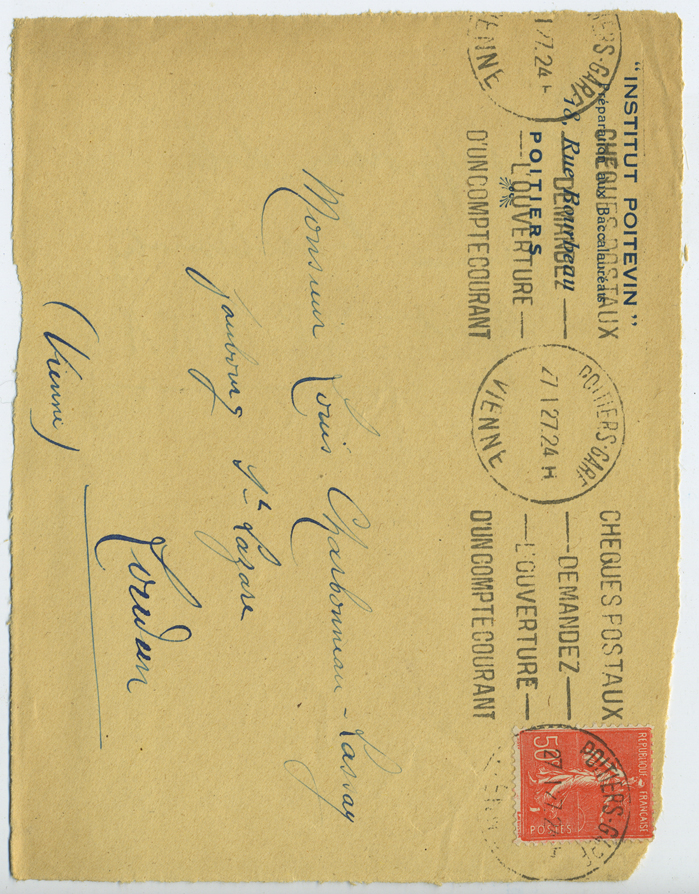 "INSTITUT POITEVIN"
Préparation aux Baccalauréats
18, Rue Bourbeau
POITIERS
POITIERS-GARE
1 27.24 H
VIENNE
CHEQUES POSTAUX
— DEMANDEZ —
— L'OUVERTURE —
D'UN COMPTE COURANT
POITIERS-GARE
27 1 27.24 H
VIENNE
CHEQUES POSTAUX
— DEMANDEZ —
— L'OUVERTURE —
D'UN COMPTE COURANT
REPUBLIQUE FRANÇAISE
50
POSTES
POITIERS-GARE
27 1 27.24 H
Monsieur Louis Charbonneau-Lassay
faubourg St Lazare
Loudun
(Vienne)